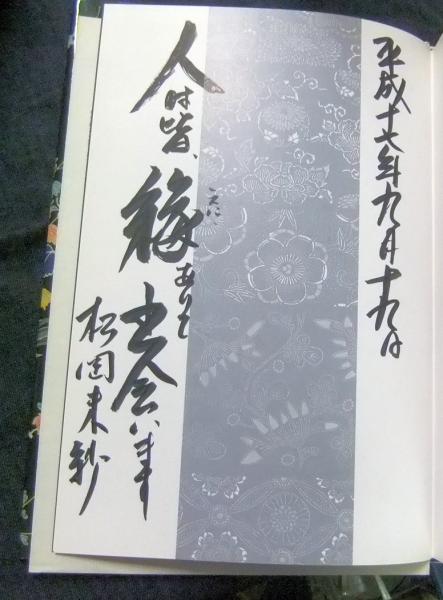 平成十六年九月十九日
人は皆、
縁ありて
えにし
出会います
松岡未紗